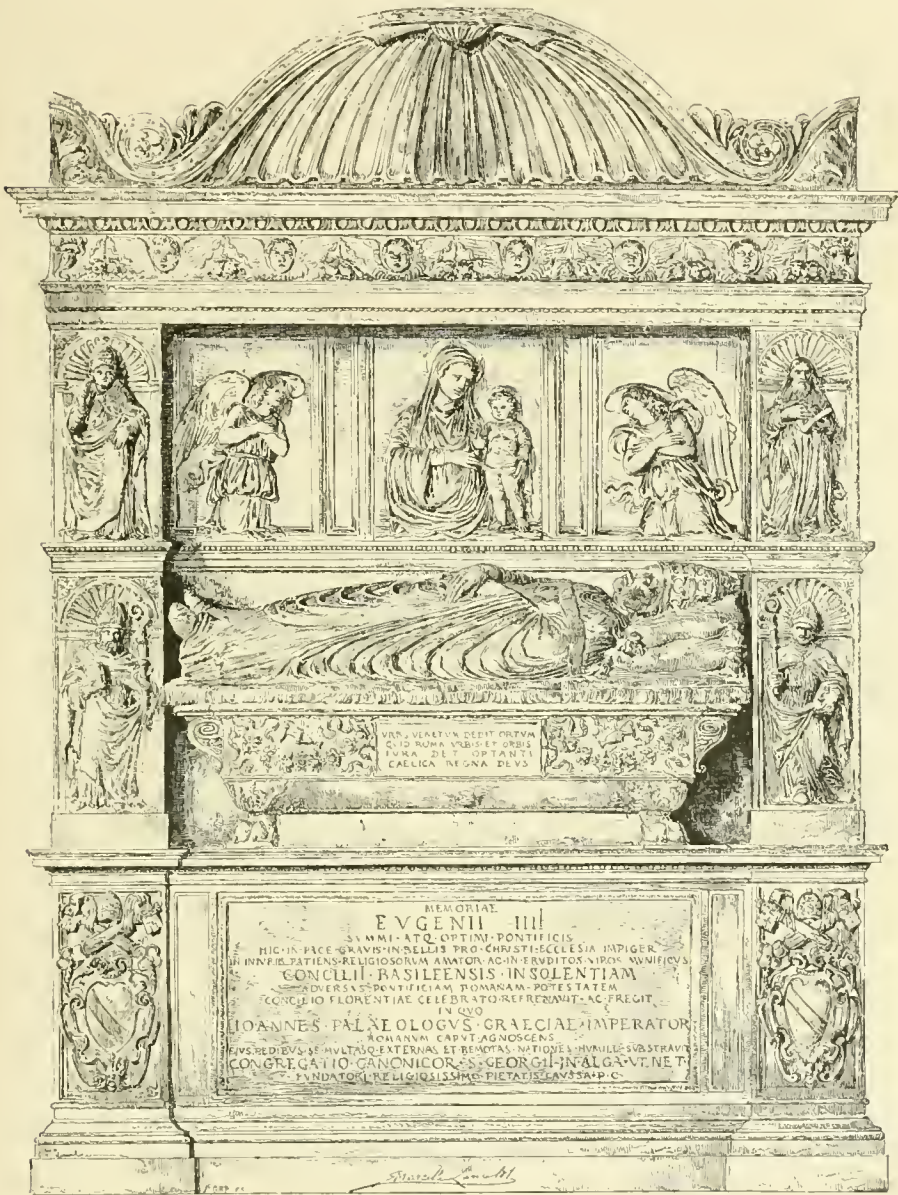 VRBS VENETVM DEDIT ORTVM
QVID ROMA VRBIS ET ORBIS
IVRA DET OPTANTI
CAELICA REGNA DEVS
MEMORIAE
EVGENII IIII
SVMMI·ATQ·OPTIMI·PONTIFICIS
HIC·IN·PACE·GRAVIS·IN·BELLIS·PRO·CHRISTI·ECCLESIA IMPIGER
IN INIVRIIS PATIENS·RELIGIOSORVM AMATOR·AC·IN·ERVDITOS·VIROS MVNIFICVS
CONCILII·BASILEENSIS·INSOLENTIAM
ADVERSVS·PONTIFICIAM ROMANAM·POTESTATEM
CONCILIO FLORENTIAE CELEBRATO·REFRENAVIT·AC·FREGIT
IN QVO
IOANNES·PALAEOLOGVS·GRAECIAE·IMPERATOR
ROMANVM CAPVT·AGNOSCENS
EIVS·PEDIBVS·SE·MVLTASQ·EXTERNAS ET·REMOTAS·NATIONES·HVMILL·SVBSTRAVIT
CONGREGATIO·CANONICOR·S·GEORGII·IN·ALGA·VENET
FVNDATORI·RELIGIOSISSIMO·PIETATIS·CAVSSA·P·C·